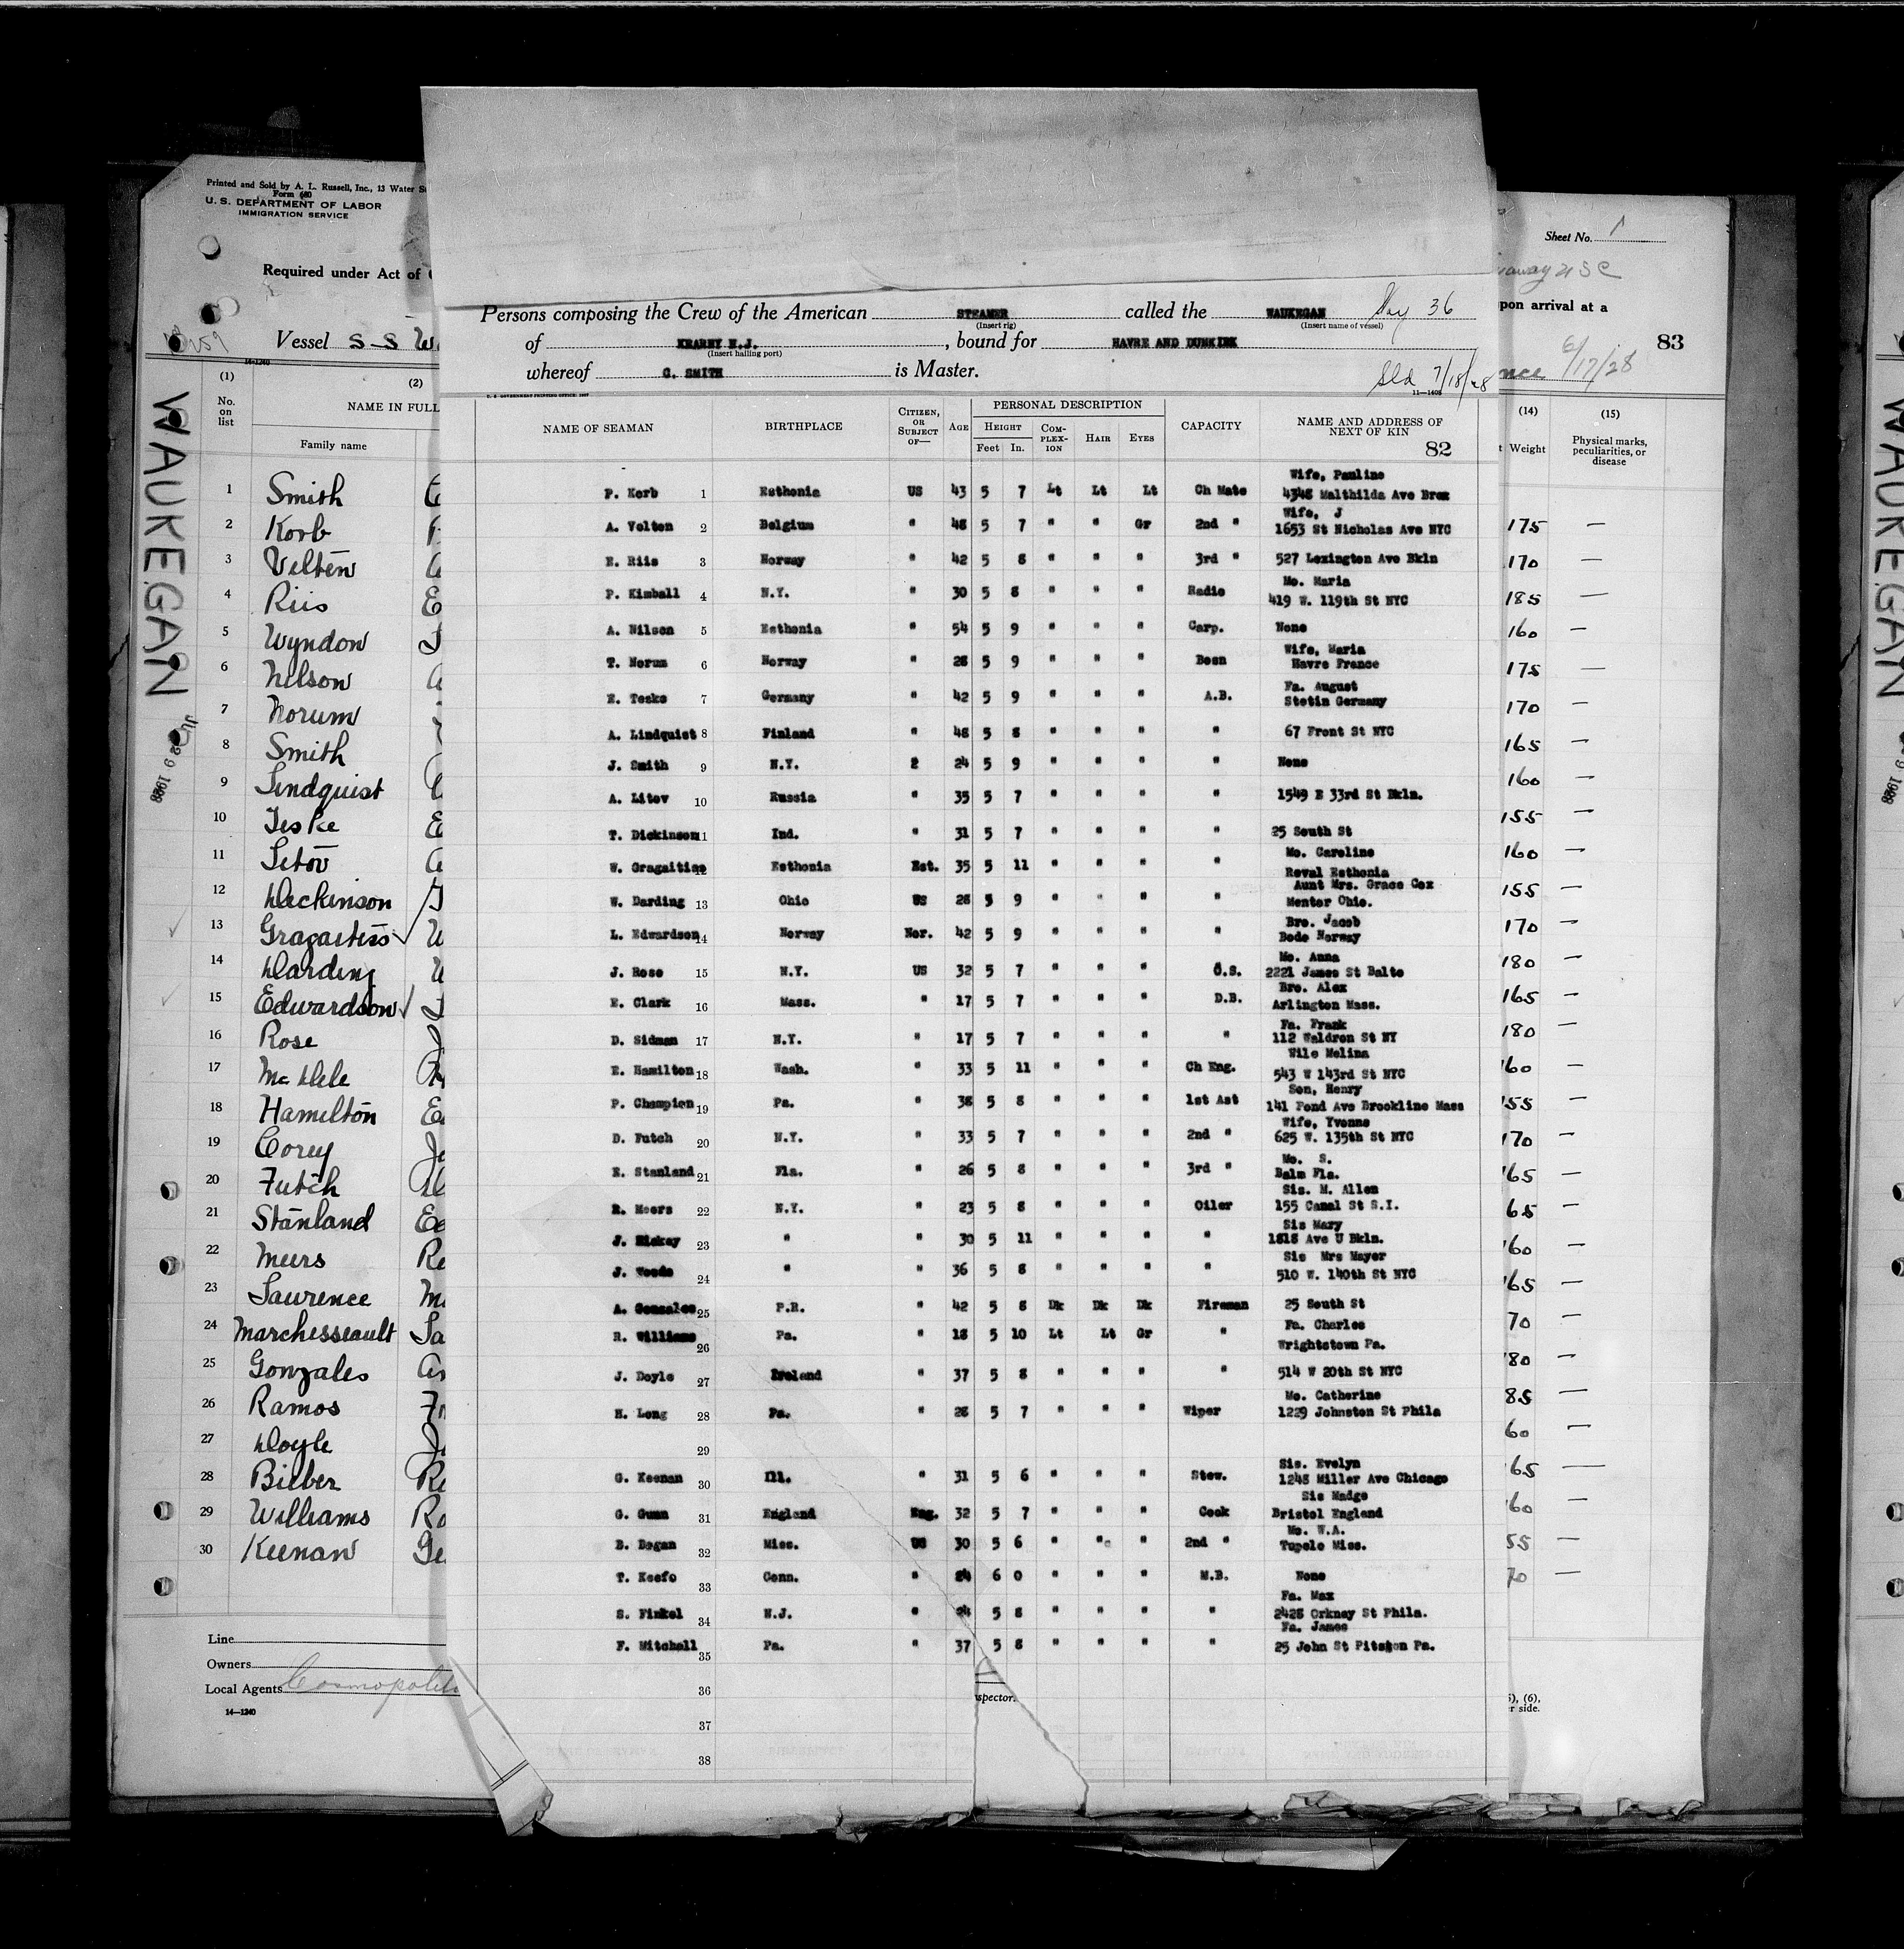 Printed and Sold by A. L. Russell, Inc., 13 Water
Form 680
U. S. DEPARTMENT OF LABOR
IMMIGRATION SERVICE
Required under Act of
Vessel S-S W
14-1240
(1) (2)
No. on list
NAME IN FULL
Family name
1 Smith
2 Korb
3 Velten
4 Riis
5 Wyndon
6 Nilson
7 Norum
8 Smith
9 Lindquist
10 Teske
11 Letov
12 Dickinson
13 Gragaitiss
14 Harding
15 Edwardson
16 Rose
17 Mc Dele
18 Hamilton
19 Corey
20 Futch
21 Stanland
22 Meers
23 Laurence
24 Marchesseault
25 Gonzales
26 Ramos
27 Doyle
28 Bieber
29 Williams
30 Keenan
Line
Owners
Local Agents Cosmopolit
14—1240
WAUKEGAN
Persons composing the Crew of the American STEAMER called the WAUKEGAN 36
(Insert rig) (Insert name of vessel)
of KEARNY N.J. , bound for HAVRE AND DUNKIRK
(Insert hailing port)
whereof C. SMITH is Master. Sld 7/18/28
11—1405
U. S. GOVERNMENT PRINTING OFFICE: 1927
NAME OF SEAMAN BIRTHPLACE CITIZEN, OR SUBJECT OF— AGE PERSONAL DESCRIPTION CAPACITY NAME AND ADDRESS OF NEXT OF KIN
HEIGHT COMPLEXION HAIR EYES
Feet In.
82
Wife, Pauline
P. Korb 1 Esthonia US 43 5 7 Lt Lt Lt Ch Mate 4348 Malthilda Ave Bronx
Wife, J
A. Velten 2 Belgium " 48 5 7 " " Gr 2nd " 1653 St Nicholas Ave NYC
E. Riis 3 Norway " 42 5 8 " " " 3rd " 527 Lexington Ave Bkln
Mo. Maria
P. Kimball 4 N.Y. " 30 5 8 " " " Radio 419 W. 119th St NYC
A. Nilson 5 Esthonia " 54 5 9 " " " Carp. None
Wife, Maria
T. Norum 6 Norway " 28 5 9 " " " Bosn Havre France
Fa. August
E. Teske 7 Germany " 42 5 9 " " " A.B. Stetin Germany
A. Lindquist 8 Finland " 48 5 8 " " " " 67 Front St NYC
J. Smith 9 N.Y. 2 24 5 9 " " " " None
A. Litov 10 Russia " 35 5 7 " " " " 1549 E 33rd St Bkln.
T. Dickinson 11 Ind. " 31 5 7 " " " " 25 South St
Mo. Caroline
W. Gragaitiss 12 Esthonia Est. 35 5 11 " " " " Reval Esthonia
Aunt Mrs. Grace Cox
W. Darding 13 Ohio US 28 5 9 " " " " Mentor Ohio.
Bro. Jacob
L. Edwardson 14 Norway Nor. 42 5 9 " " " " Bodo Norway
Mo. Anna
J. Rose 15 N.Y. US 32 5 7 " " " O.S. 2221 James St Balto
Bro. Alex
E. Clark 16 Mass. " 17 5 7 " " " D.B. Arlington Mass.
Fa. Frank
D. Sidman 17 N.Y. " 17 5 7 " " " " 112 Waldron St NY
Wife Melina
E. Hamilton 18 Wash. " 33 5 11 " " " Ch Eng. 543 W 143rd St NYC
Son, Henry
P. Champion 19 Pa. " 38 5 8 " " " 1st Ast 141 Pond Ave Brookline Mass
Wife, Yvonne
D. Futch 20 N.Y. " 33 5 7 " " " 2nd " 625 W. 135th St NYC
Mo. S.
E. Stanland 21 Fla. " 26 5 8 " " " 3rd " Balm Fla.
Sis. M. Allen
R. Meers 22 N.Y. " 23 5 8 " " " Oiler 155 Canal St S.I.
Sis Mary
J. Hickey 23 " " 30 5 11 " " " " 1818 Ave U Bkln.
Sis Mrs Mayer
J. Woods 24 " " 36 5 8 " " " " 510 W. 140th St NYC
A. Gonzales 25 P.R. " 42 5 8 Dk Dk Dk Fireman 25 South St
Fa. Charles
R. Williams 26 Pa. " 18 5 10 Lt Lt Gr " Wrightstown Pa.
J. Doyle 27 Ireland " 37 5 8 " " " " 514 W 20th St NYC
Mo. Catherine
H. Long 28 Pa. " 28 5 7 " " " Wiper 1229 Johnston St Phila
29
Sis. Evelyn
G. Keenan 30 Ill. " 31 5 6 " " " Stew. 1248 Miller Ave Chicago
Sis Madge
G. Gunn 31 England Eng. 32 5 7 " " " Cook Bristol England
Mo. W.A.
B. Dogan 32 Miss. US 30 5 6 " " " 2nd " Tupelo Miss.
T. Keefe 33 Conn. " 24 6 0 " " " M.B. None
Fa. Max
S. Finkel 34 N.J. " 24 5 8 " " " " 2428 Orkney St Phila.
Fa. James
F. Mitchell 35 Pa. " 37 5 8 " " " " 25 John St Pitston Pa.
36
spector.
37
38
Sheet No. 1
upon arrival at a
83
nce 6/17/28
(14) (15)
Weight Physical marks, peculiarities, or disease
175 —
170 —
185 —
160 —
175 —
170 —
165 —
160 —
155 —
160 —
155 —
170 —
180 —
165 —
180 —
160 —
155 —
170 —
165 —
65 —
160 —
165 —
70 —
80 —
85 —
60 —
65 —
60 —
55 —
70 —
), (6),
r side.
WAUKEGAN